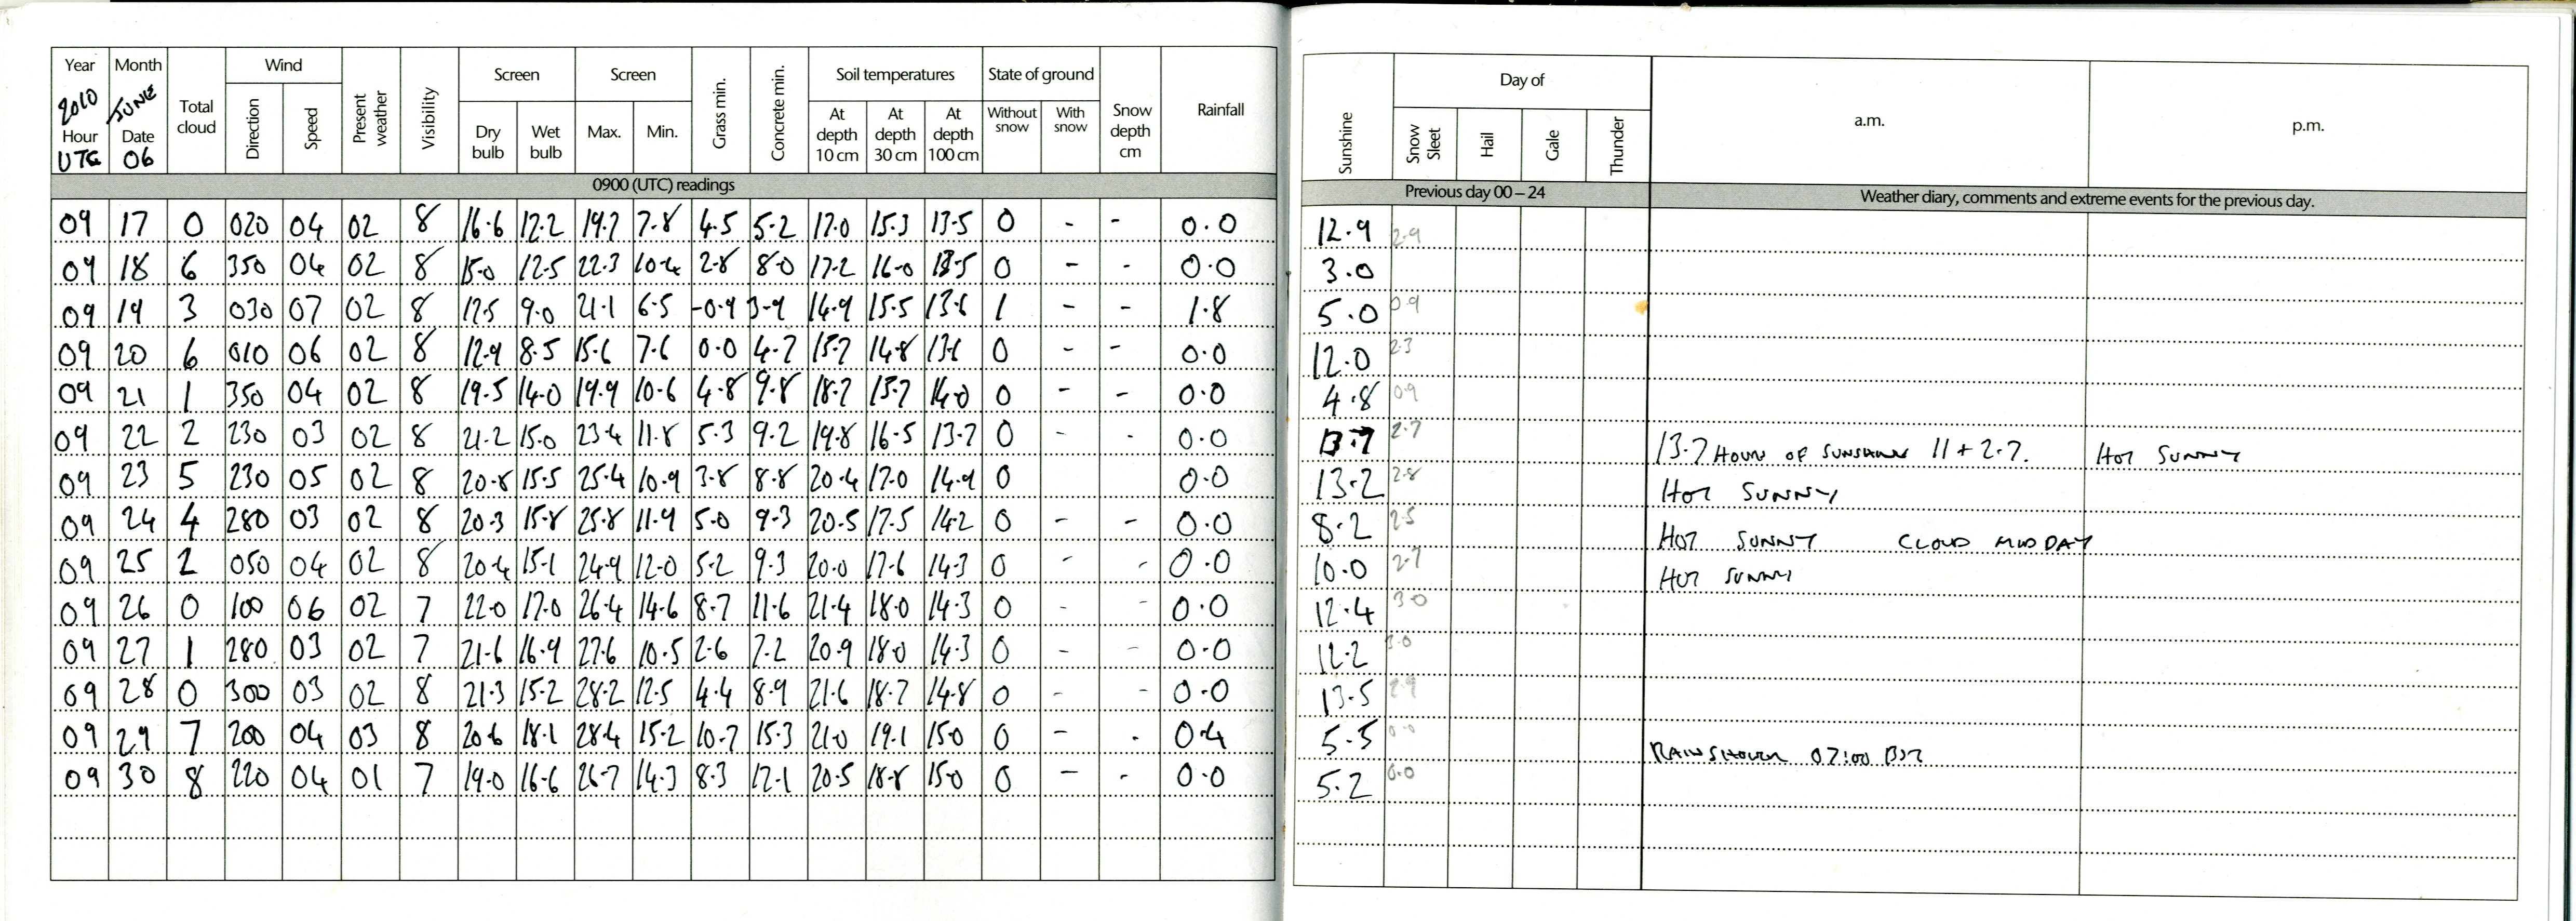 Year Month Total cloud Wind Present weather Visibility Screen Screen Grass min. Concrete min. Soil temperatures State of ground Snow depth cm Rainfall Sunshine Day of a.m. p.m.
2010 JUNE Direction Speed Dry bulb Wet bulb Max. Min. At depth 10 cm At depth 30 cm At depth 100 cm Without snow With snow Snow Sleet Hail Gale Thunder
Hour Date
UTC 06
0900 (UTC) readings Previous day 00 – 24 Weather diary, comments and extreme events for the previous day.
09 17 0 020 04 02 8 16.6 12.2 19.7 7.8 4.5 5.2 17.0 15.3 13.5 0 - - 0.0 12.9 2.9
09 18 6 350 04 02 8 15.0 12.5 22.3 10.4 2.8 8.0 17.2 16.0 13.5 0 - - 0.0 3.0
09 19 3 030 07 02 8 12.5 9.0 21.1 6.5 -0.9 3.9 14.9 15.5 13.6 1 - - 1.8 5.0 0.9
09 20 6 010 06 02 8 12.9 8.5 15.6 7.6 0.0 4.7 15.7 14.8 13.6 0 - - 0.0 12.0 2.3
09 21 1 350 04 02 8 19.5 14.0 19.9 10.6 4.8 9.8 18.7 15.7 14.0 0 - - 0.0 4.8 0.9
09 22 2 230 03 02 8 21.2 15.0 23.4 11.8 5.3 9.2 19.8 16.5 13.7 0 - - 0.0 13.7 2.7 13.7 HOURS OF SUNSHINE 11 + 2.7. HOT SUNNY
09 23 5 230 05 02 8 20.8 15.5 25.4 10.9 3.8 8.8 20.4 17.0 14.9 0 0.0 13.2 2.8 HOT SUNNY
09 24 4 280 03 02 8 20.3 15.8 25.8 11.9 5.0 9.3 20.5 17.5 14.2 0 - - 0.0 8.2 2.5 HOT SUNNY CLOUD MIDDAY
09 25 2 050 04 02 8 20.4 15.1 24.9 12.0 5.2 9.3 20.0 17.6 14.3 0 - - 0.0 10.0 2.7 HOT SUNNY
09 26 0 100 06 02 7 22.0 17.0 26.4 14.6 8.7 11.6 21.4 18.0 14.3 0 - - 0.0 12.4 3.0
09 27 1 280 03 02 7 21.6 16.9 27.6 10.5 2.6 7.2 20.9 18.0 14.3 0 - - 0.0 12.2 3.0
09 28 0 300 03 02 8 21.3 15.2 28.2 12.5 4.4 8.9 21.6 18.7 14.8 0 - - 0.0 13.5 2.9
09 29 7 200 04 03 8 20.6 18.1 28.4 15.2 10.7 15.3 21.0 19.1 15.0 0 - - 0.4 5.5 0.0 RAIN SHOWER 07:00 BST
09 30 8 220 04 01 7 19.0 16.6 26.7 14.3 8.3 12.1 20.5 18.8 15.0 0 - - 0.0 5.2 0.0